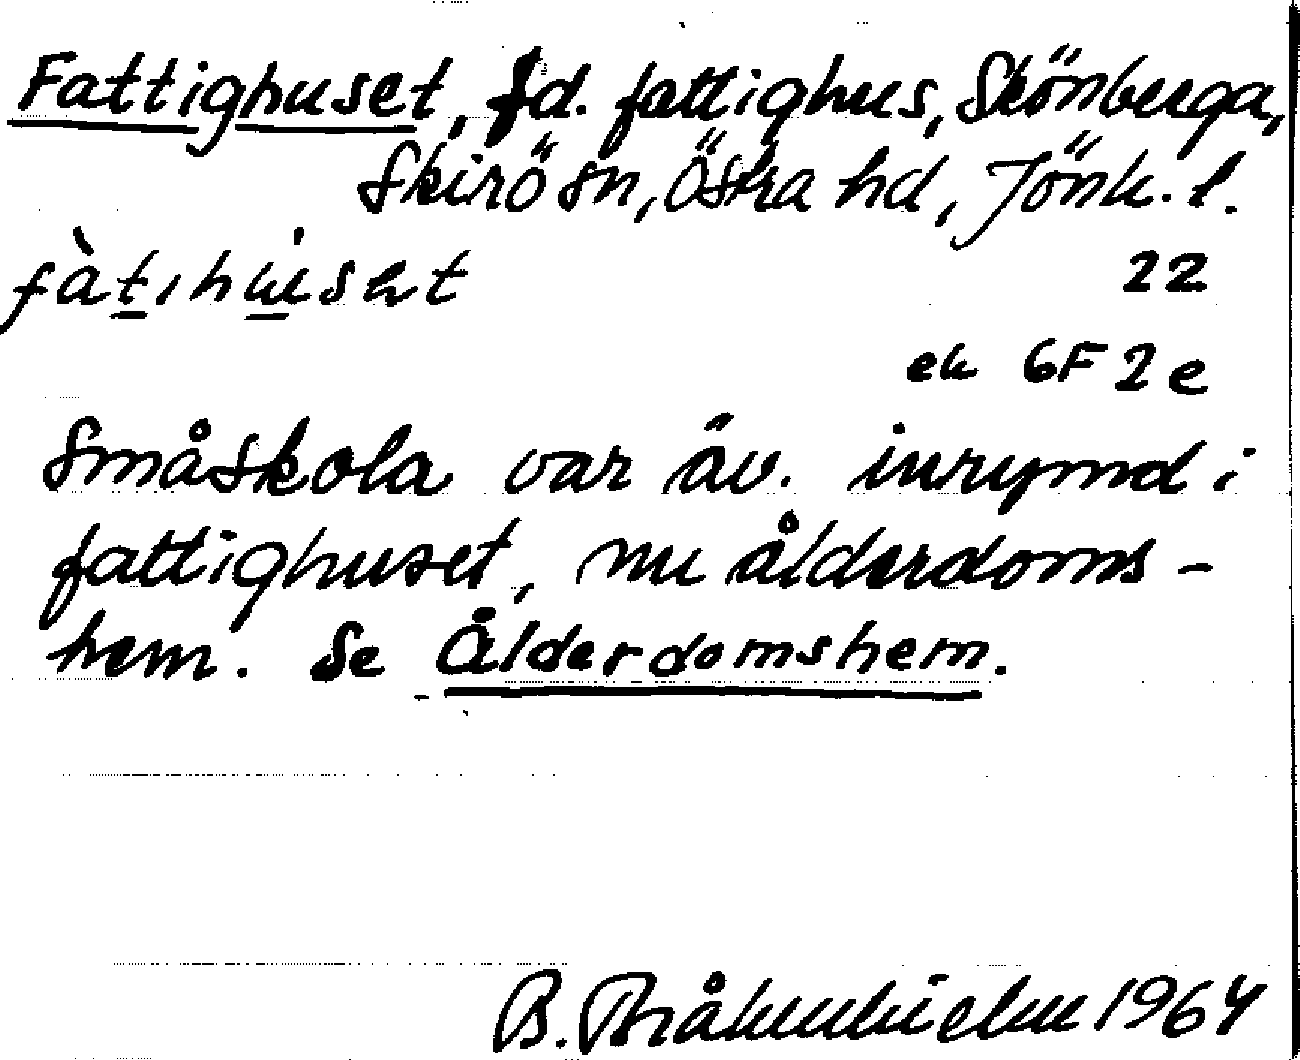 Fattighuset, fd. fattighus, Skönberga,
Skirö sn, Östra hd, Jönk. l.
fàtıhuset 22
ek 6F 2e
Småskola var äv. inrymd i
fattighuset, nu ålderdoms-
hem. Se Ålderdomshem.
B. 1964